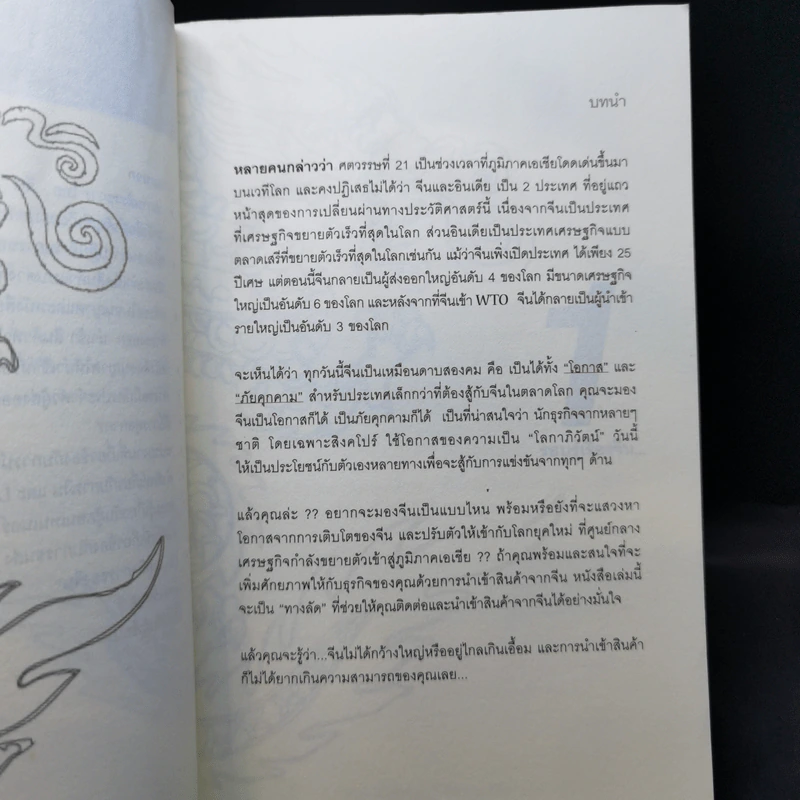 บทนำ
หลายคนกล่าวว่า ศตวรรษที่ 21 เป็นช่วงเวลาที่ภูมิภาคเอเชียโดดเด่นขึ้นมา
บนเวทีโลก และคงปฏิเสธไม่ได้ว่า จีนและอินเดีย เป็น 2 ประเทศ ที่อยู่แถว
หน้าสุดของการเปลี่ยนผ่านทางประวัติศาสตร์นี้ เนื่องจากจีนเป็นประเทศ
ที่เศรษฐกิจขยายตัวเร็วที่สุดในโลก ส่วนอินเดียเป็นประเทศเศรษฐกิจแบบ
ตลาดเสรีที่ขยายตัวเร็วที่สุดในโลกเช่นกัน แม้ว่าจีนเพิ่งเปิดประเทศ ได้เพียง 25
ปีเศษ แต่ตอนนี้จีนกลายเป็นผู้ส่งออกใหญ่อันดับ 4 ของโลก มีขนาดเศรษฐกิจ
ใหญ่เป็นอันดับ 6 ของโลก และหลังจากที่จีนเข้า WTO จีนได้กลายเป็นผู้นำเข้า
รายใหญ่เป็นอันดับ 3 ของโลก
จะเห็นได้ว่า ทุกวันนี้จีนเป็นเหมือนดาบสองคม คือ เป็นได้ทั้ง "โอกาส" และ
"ภัยคุกคาม" สำหรับประเทศเล็กกว่าที่ต้องสู้กับจีนในตลาดโลก คุณจะมอง
จีนเป็นโอกาสก็ได้ เป็นภัยคุกคามก็ได้ เป็นที่น่าสนใจว่า นักธุรกิจจากหลายๆ
ชาติ โดยเฉพาะสิงคโปร์ ใช้โอกาสของความเป็น "โลกาภิวัตน์" วันนี้
ให้เป็นประโยชน์กับตัวเองหลายทางเพื่อจะสู้กับการแข่งขันจากทุกๆ ด้าน
แล้วคุณล่ะ ?? อยากจะมองจีนเป็นแบบไหน พร้อมหรือยังที่จะแสวงหา
โอกาสจากการเติบโตของจีน และปรับตัวให้เข้ากับโลกยุคใหม่ ที่ศูนย์กลาง
เศรษฐกิจกำลังขยายตัวเข้าสู่ภูมิภาคเอเชีย ?? ถ้าคุณพร้อมและสนใจที่จะ
เพิ่มศักยภาพให้กับธุรกิจของคุณด้วยการนำเข้าสินค้าจากจีน หนังสือเล่มนี้
จะเป็น "ทางลัด" ที่ช่วยให้คุณติดต่อและนำเข้าสินค้าจากจีนได้อย่างมั่นใจ
แล้วคุณจะรู้ว่า...จีนไม่ได้กว้างใหญ่หรืออยู่ไกลเกินเอื้อม และการนำเข้าสินค้า
ก็ไม่ได้ยากเกินความสามารถของคุณเลย...